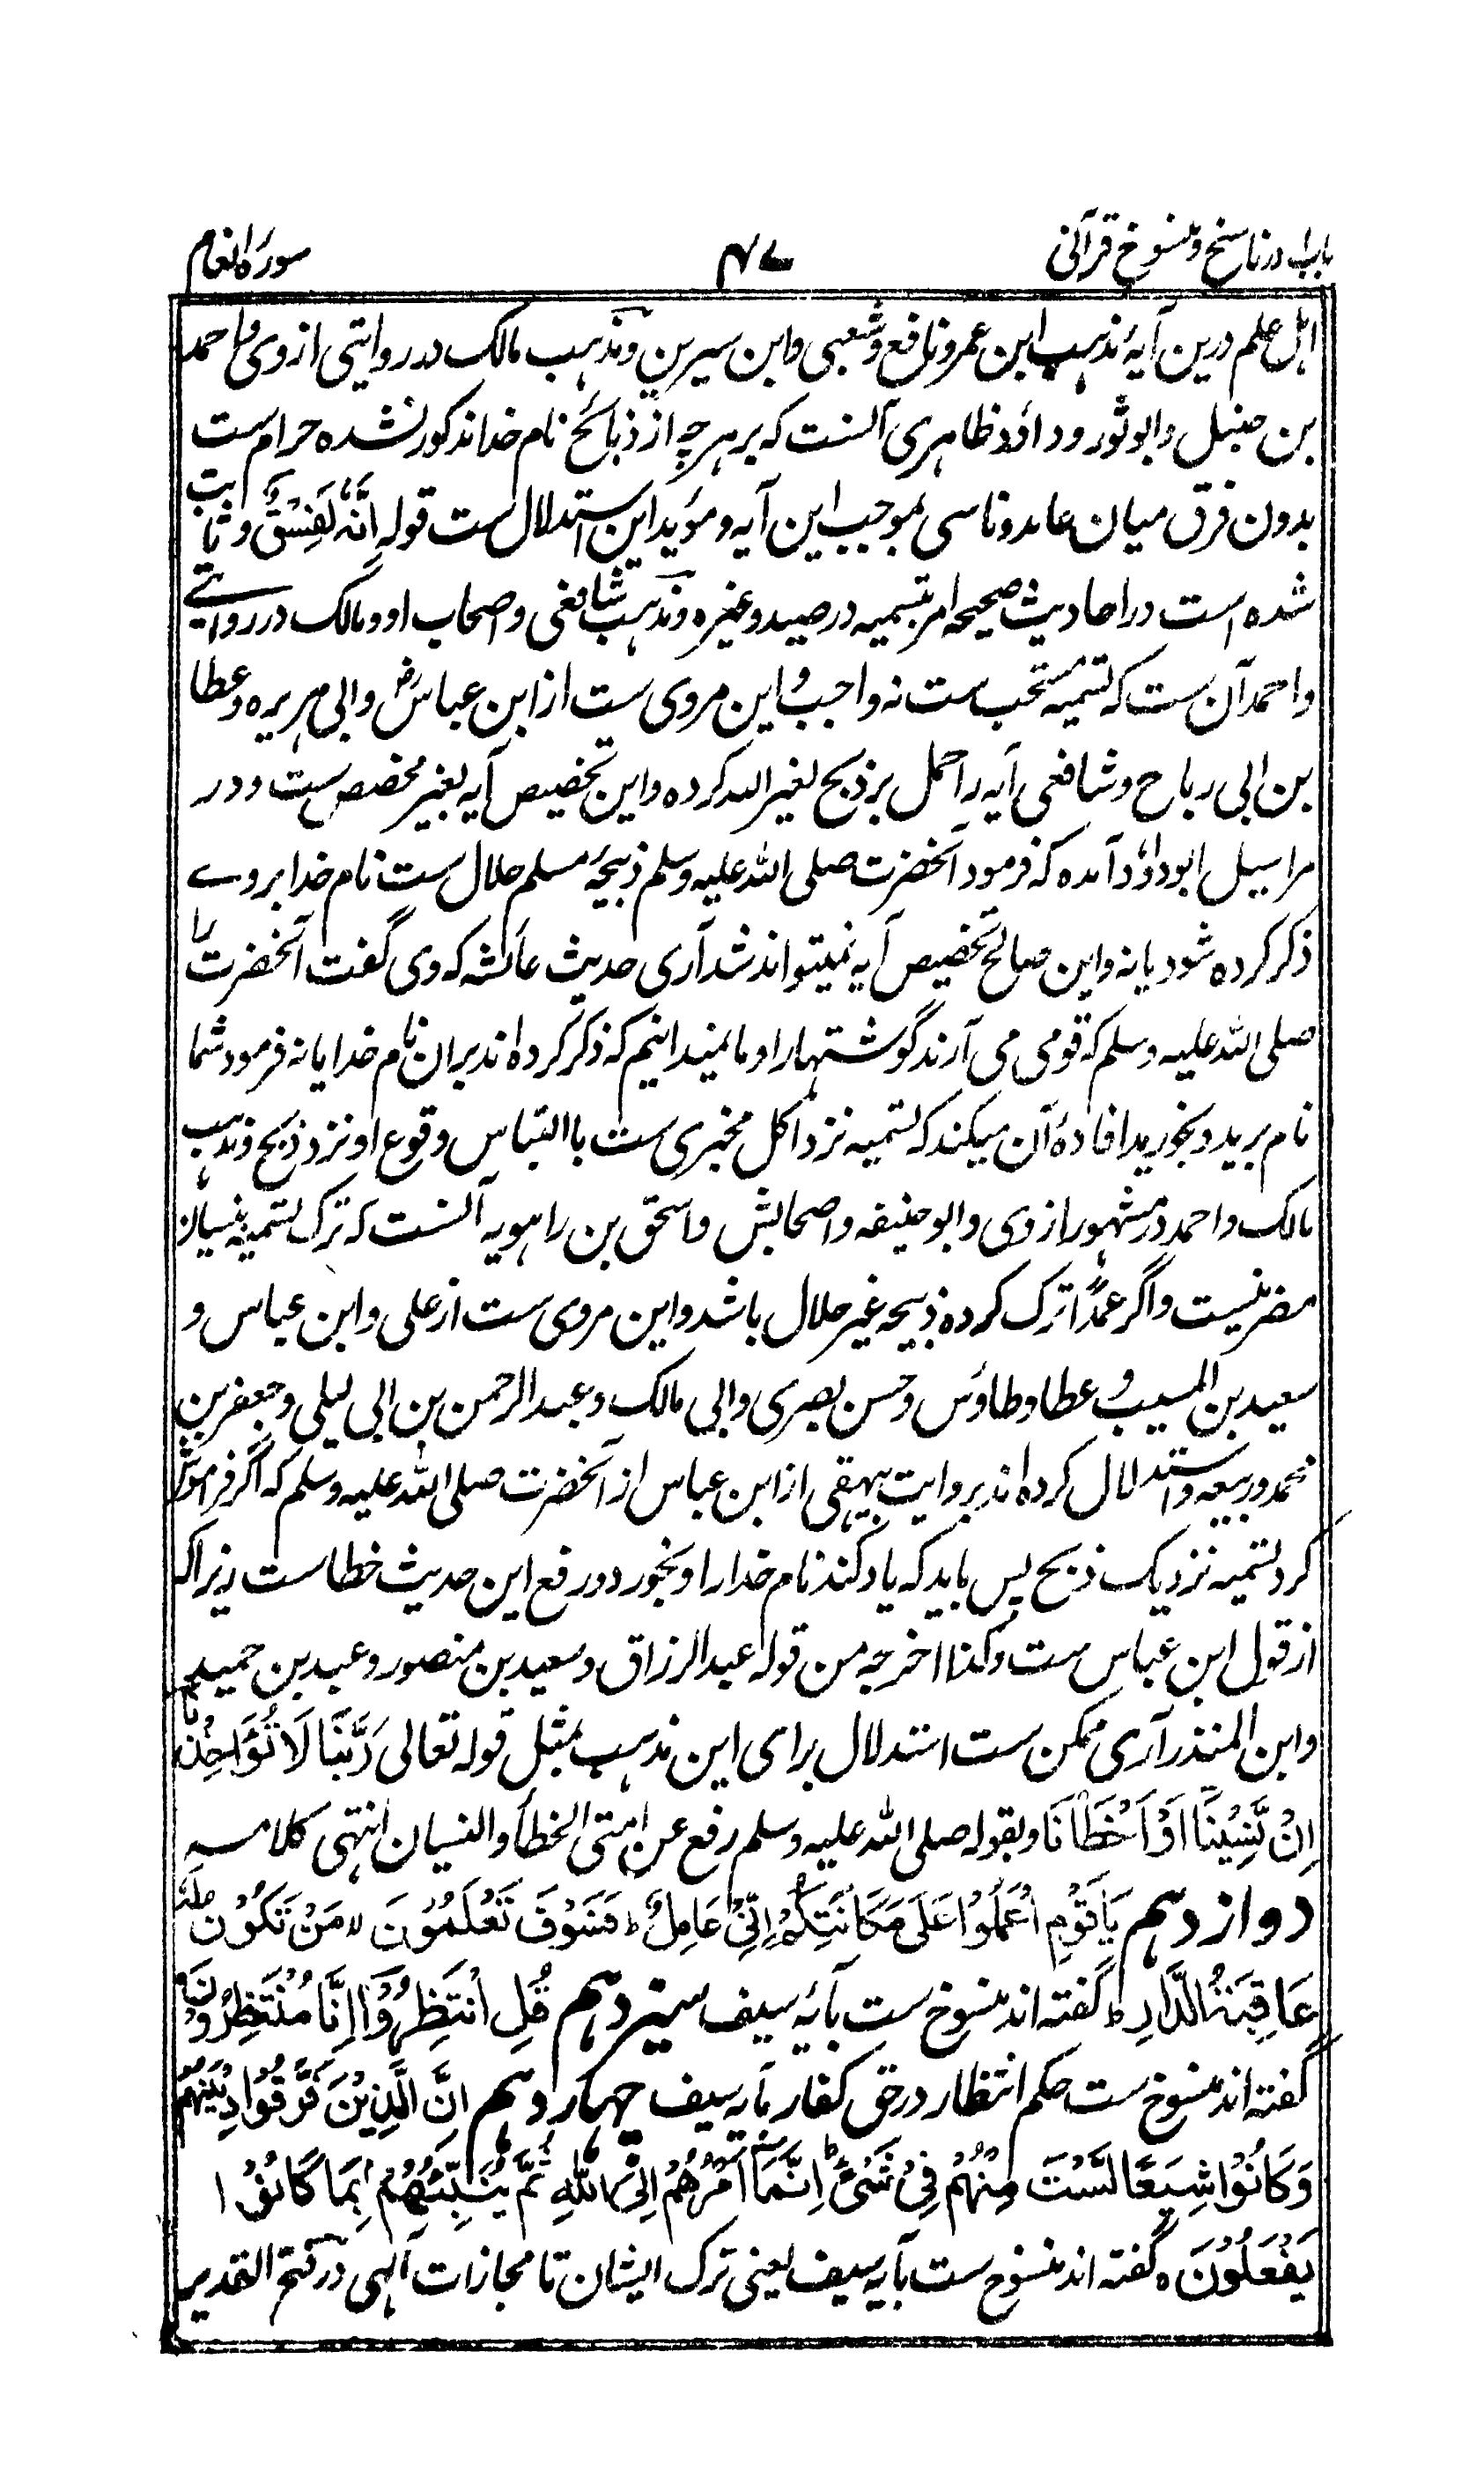 باب در ناسخ و منسوخ قرآنی
۴۷
سورهٔ انعام
اہل علم درین آیہ مذہب ابن عمر و نافع و شعبی و ابن سیرین و مذہب مالک در روایتی از وی و احمد
بن حنبل و ابو ثور و داؤد ظاہری آنست کہ بر ہر چہ از ذبائح نام خدا مذکور نشدہ حرام ست
بدون فرق میان عامد و ناسی بموجب این آیہ و مؤید این استدلال ست قولہ اِنَّہٗ لَفِسْقٌ و ثابت
شدہ است در احادیث صحیحہ امر بتسمیہ در صید و غیرہ و مذہب شافعی و اصحاب او و مالک در روایتے
و احمد آن ست کہ تسمیہ مستحب ست نہ واجب و این مروی ست از ابن عباسؓ و ابی ہریرہ و عطا
بن ابی رباح و شافعی آیہ را حمل بر ذبح لغیر اللہ کردہ و این تخصیص آیہ بغیر مخصص ست و در
مراسیل ابو داؤد آمدہ کہ فرمود آنحضرت صلی اللہ علیہ وسلم ذبیحۂ مسلم حلال ست نام خدا بروے
ذکر کردہ شود یا نہ و این صالح تخصیص آیہ نمیتواند شد آری حدیث عائشہ کہ وی گفت آنحضرت را
صلی اللہ علیہ وسلم کہ قومی می آرند گوشتہا را و ما نمیدانیم کہ ذکر کردہ اند بران نام خدا یا نہ فرمود شما
نام برید و بخورید افادۂ آن میکند کہ تسمیہ نزد اکل مجزی ست با التباس وقوع او نزد ذبح و مذہب
مالک و احمد در مشہور از وی و ابو حنیفہ و اصحابش و اسحق بن راہویہ آنست کہ ترک تسمیہ بنسیان
مضر نیست و اگر عمداً ترک کردہ ذبیحہ غیر حلال باشد و این مروی ست از علی و ابن عباس و
سعید بن المسیب و عطا و طاؤس و حسن بصری و ابی مالک و عبد الرحمن بن ابی لیلی و جعفر بن
محمد و ربیعہ و استدلال کردہ اند بروایت بیہقی از ابن عباس از آنحضرت صلی اللہ علیہ وسلم کہ اگر فراموش
کرد تسمیہ نزدیک ذبح پس باید کہ یاد کند نام خدا را و بخورد و رفع این حدیث خطاست زیراکہ
از قول ابن عباس ست و کذا اخرجہ من قولہ عبد الرزاق و سعید بن منصور و عبد بن حمید
و ابن المنذر آری ممکن ست استدلال برای این مذہب بمثل قولہ تعالی رَبَّنَا لَا تُؤَاخِذْنَا
اِنْ نَّسِیْنَا اَوْ اَخْطَاْنَا و بقولہ صلی اللہ علیہ وسلم رفع عن امتی الخطأ والنسیان انتہی کلامہ
دوازدہم یَا قَوْمِ اعْمَلُوْا عَلٰی مَکَانَتِکُمْ اِنِّیْ عَامِلٌ ط فَسَوْفَ تَعْلَمُوْنَ لا مَنْ تَکُوْنُ لَہٗ
عَاقِبَۃُ الدَّارِ ط گفتہ اند منسوخ ست بآیۂ سیف سیزدہم قُلِ انْتَظِرُوْا اِنَّا مُنْتَظِرُوْنَ
گفتہ اند منسوخ ست حکم انتظار در حق کفار بآیہ سیف چہاردہم اِنَّ الَّذِیْنَ فَرَّقُوْا دِیْنَہُمْ
وَکَانُوْا شِیَعًا لَّسْتَ مِنْہُمْ فِیْ شَیْءٍ ط اِنَّمَا اَمْرُہُمْ اِلَی اللّٰہِ ثُمَّ یُنَبِّئُہُمْ بِمَا کَانُوْا
یَفْعَلُوْنَ ہ گفتہ اند منسوخ ست بآیہ سیف یعنی ترک ایشان تا مجازات آلہی در فتح القدیر